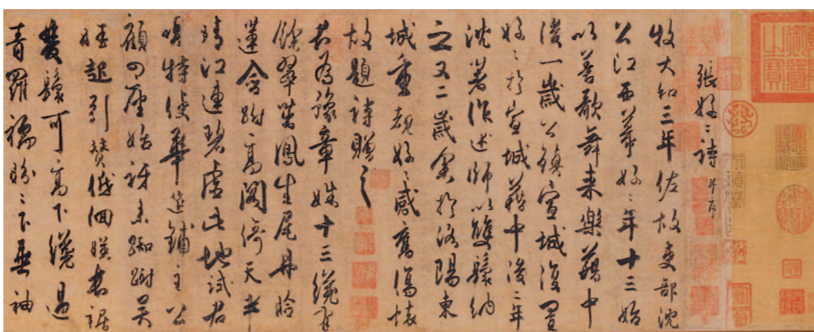 張好〻詩 并序
牧大和三年佐故吏部沈
公江西幕好〻年十三始
以善歌舞來樂籍中
後一歲公鎮宣城復置
好〻於宣城籍中後二年
沈著作述師以雙鬟納
之又二歲余於洛陽東
城重覩好〻感舊傷懷
故題詩贈之
君為豫章姝十三纔有
餘翠茁鳳生尾丹臉
蓮含跗高閣倚天半
晴江連碧虛此地試君
唱特使華筵鋪主公
顧四座始訝來踟躕吳
娃起引贊低佪暎長裾
雙鬟可高下纔過
青羅襦盼〻下垂袖